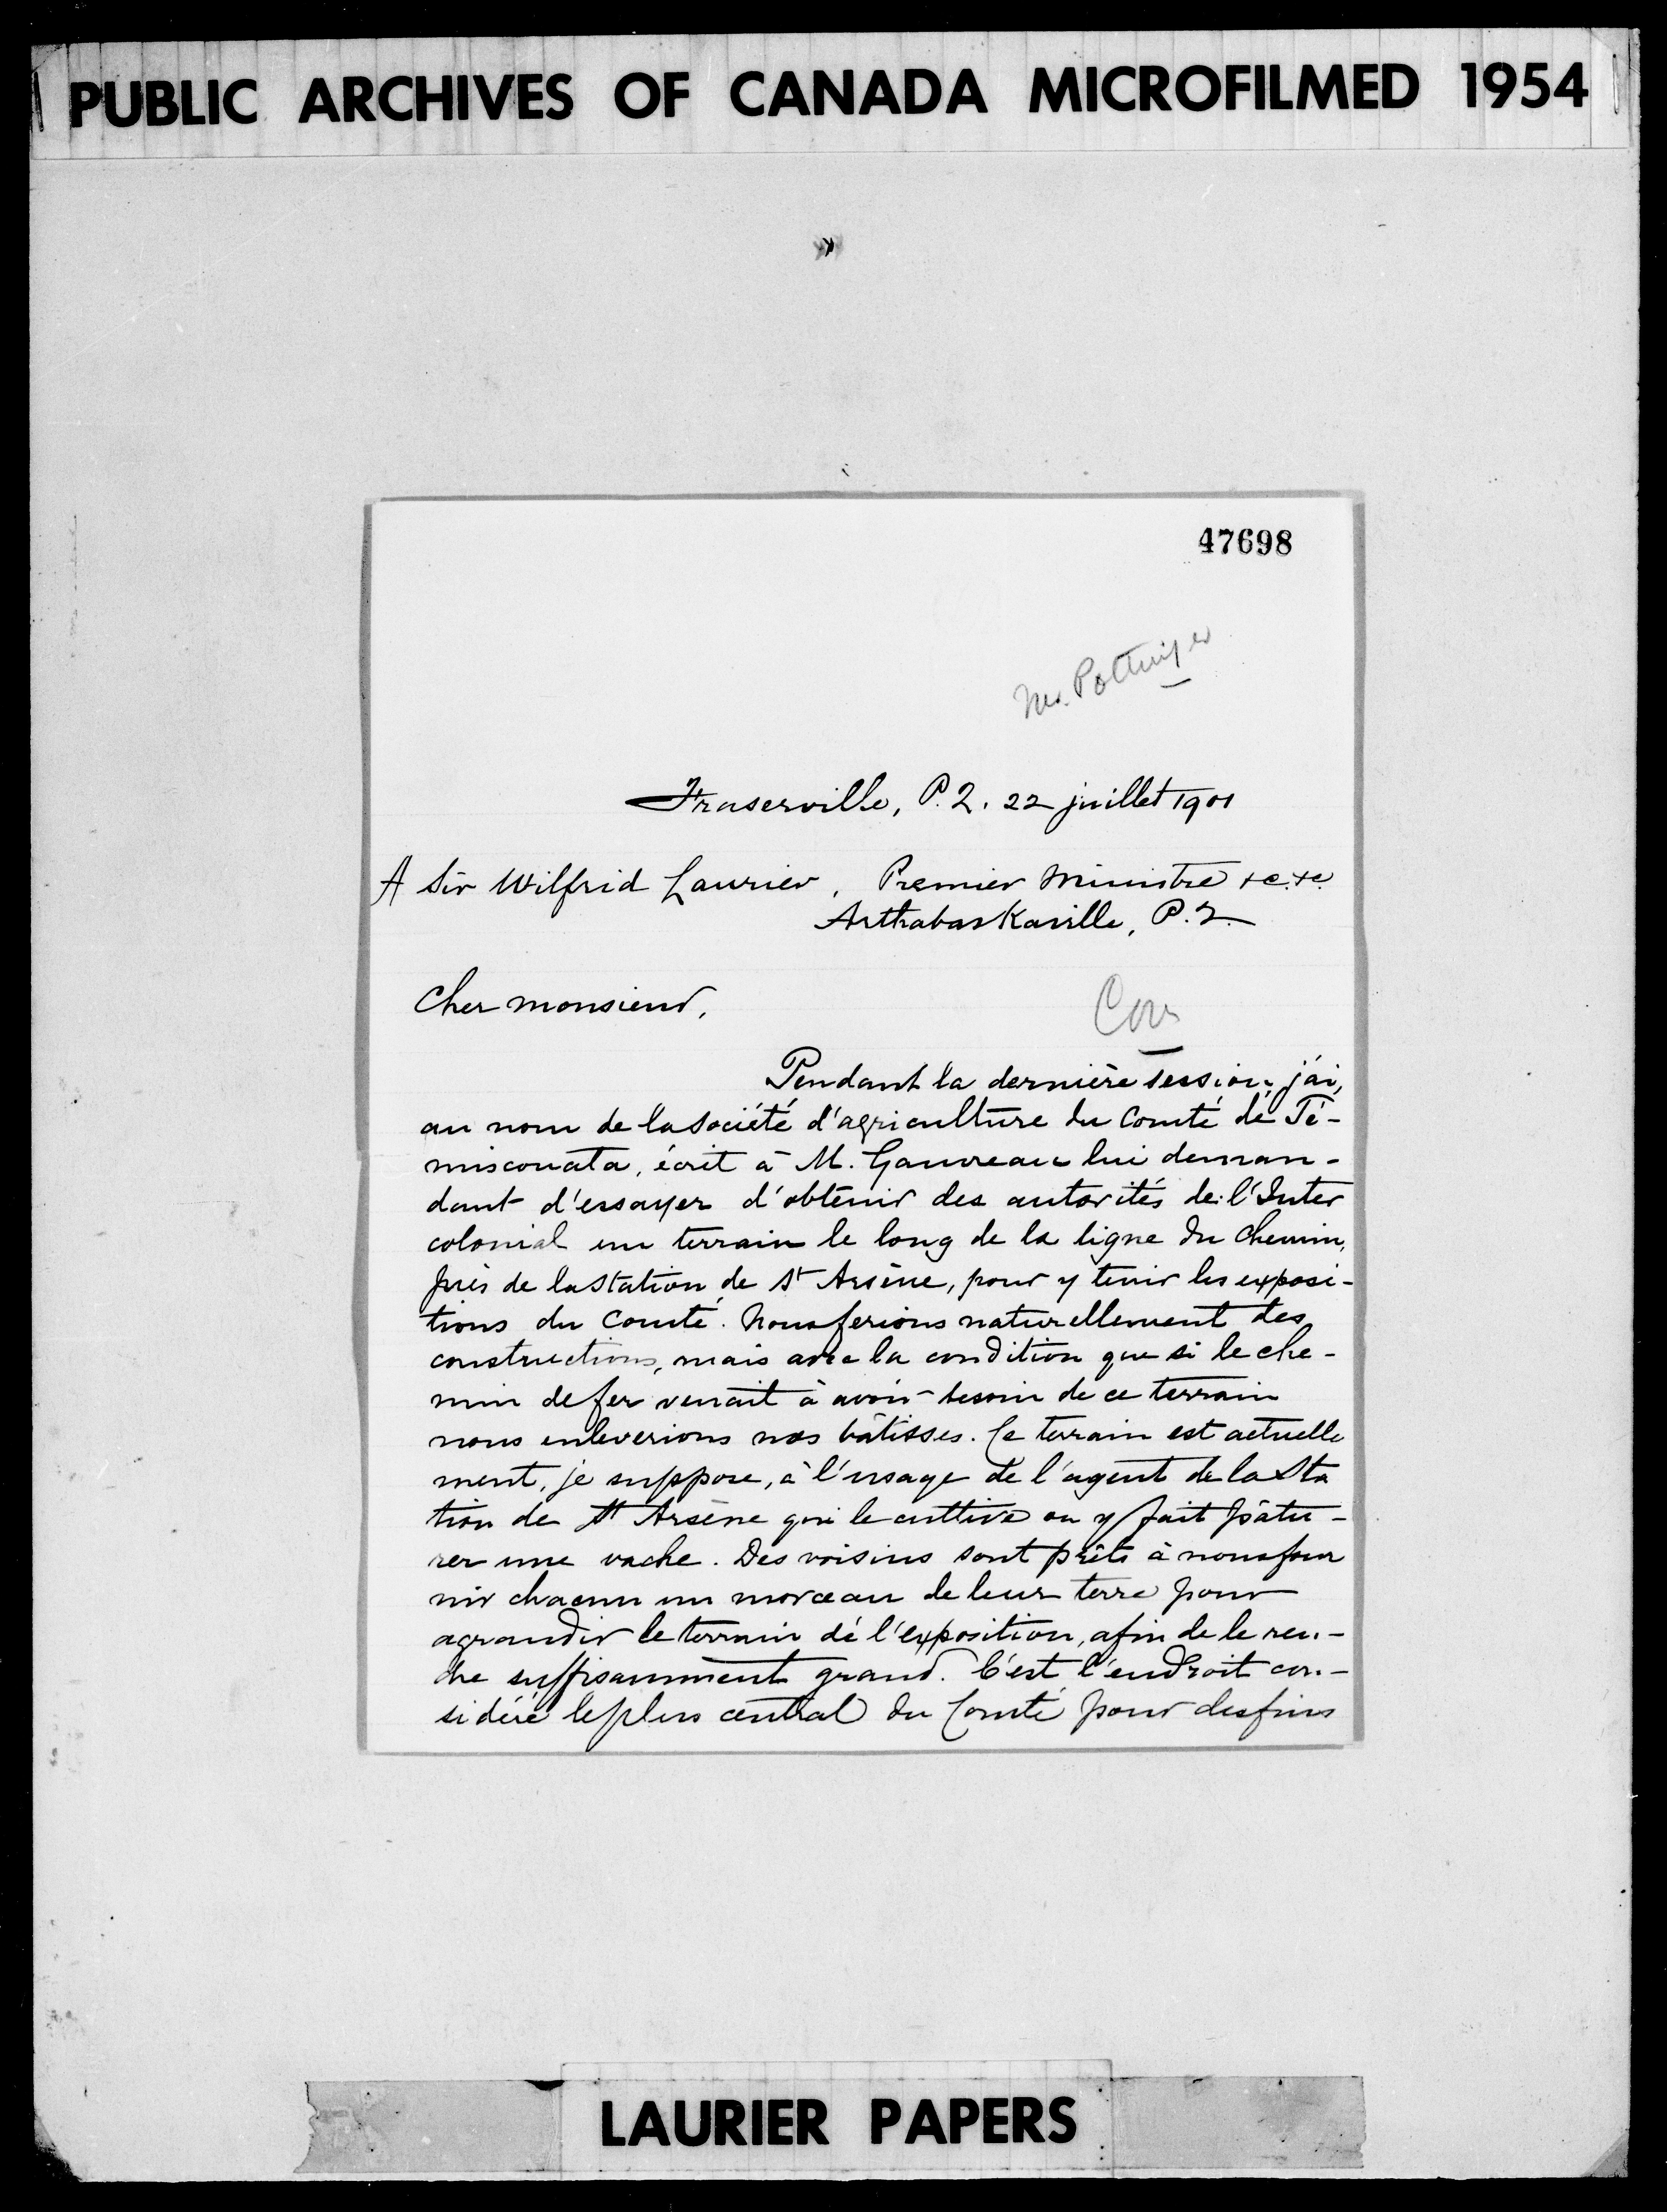 PUBLIC ARCHIVES OF CANADA MICROFILMED 1954
47698
Mr. Pottinger
Fraserville, P.Q. 22 juillet 1901
A Sir Wilfrid Laurier, Premier Ministre &c. &c.
Arthabaskaville, P.Q.
Cher monsieur,
Cor
Pendant la dernière session, j'ai,
au nom de la Société d'agriculture du Comté de Té-
misconata, écrit à M. Gauvreau lui deman-
dant d'essayer d'obtenir des autorités de l'Inter
colonial un terrain le long de la ligne du chemin,
près de la station de St Arsène, pour y tenir les exposi-
tions du Comté. Nous ferions naturellement des
constructions, mais avec la condition que si le che-
min de fer venait à avoir besoin de ce terrain
nous enleverions nos bâtisses. Ce terrain est actuelle
ment, je suppose, à l'usage de l'agent de la Sta
tion de St Arsène qui le cultive ou y fait pâtu-
rer une vache. Des voisins sont prêts à nous four
nir chacun un morceau de leur terre pour
agrandir le terrain de l'exposition, afin de le ren-
dre suffisamment grand. C'est l'endroit con-
sidéré le plus central du Comté pour des fins
LAURIER PAPERS